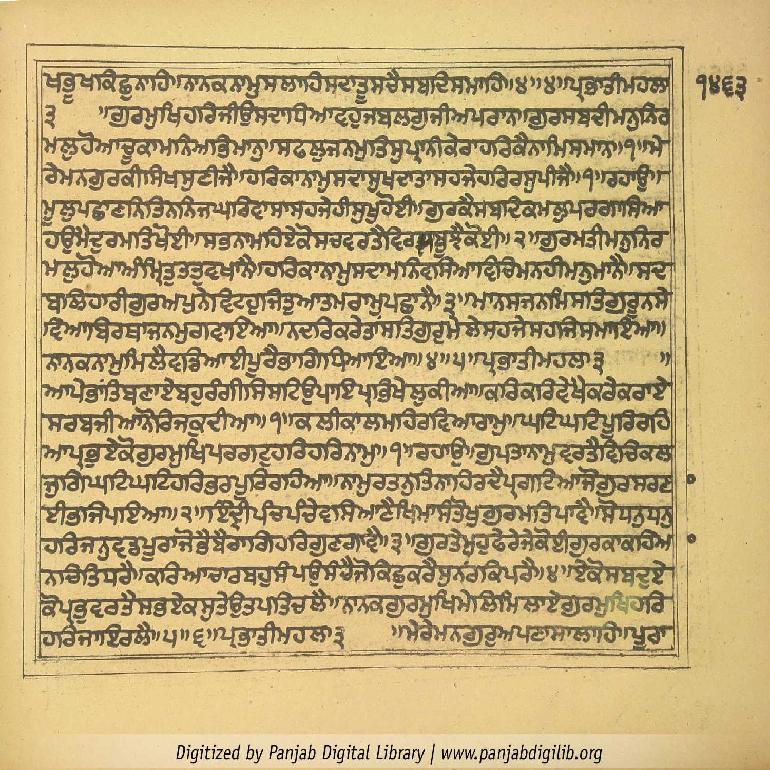 ਖਭੂਖਾਕਿਛੁਨਾਹਿ॥ਨਾਨਕਨਾਮੁਸਲਾਹਿਸਦਾਤੂਸਚੈਸਬਦਿਸਮਾਹਿ॥੪॥੪॥ਪ੍ਰਭਾਤੀਮਹਲਾ
੧੪੬੩
੩ ॥ਗੁਰਮੁਖਿਹਰਿਜੀਉਸਦਾਧਿਆਵਹੁਜਬਲਗੁਜੀਅਪਰਾਨ॥ਗੁਰਸਬਦੀਮਨੁਨਿਰ
ਮਲੁਹੋਆਚੂਕਾਮਨਿਅਭਿਮਾਨੁ॥ਸਫਲੁਜਨਮੁਤਿਸੁਪ੍ਰਾਨੀਕੇਰਾਹਰਿਕੈਨਾਮਿਸਮਾਨ॥੧॥ਮੇ
ਰੇਮਨਗੁਰਕੀਸਿਖਸੁਣੀਜੈ॥ਹਰਿਕਾਨਾਮੁਸਦਾਸੁਖਦਾਤਾਸਹਜੇਹਰਿਰਸੁਪੀਜੈ॥੧॥ਰਹਾਉ॥
ਮੂਲੁਪਛਾਣਨਿਤਿਨਨਿਜਘਰਿਵਾਸਾਸਹਜੇਹੀਸੁਖੁਹੋਈ॥ਗੁਰਕੈਸਬਦਿਕਮਲੁਪਰਗਾਸਿਆ
ਹਉਮੈਦੁਰਮਤਿਖੋਈ॥ਸਭਨਾਮਹਿਏਕੋਸਚੁਵਰਤੈਵਿਰਲਾਬੂਝੈਕੋਈ॥੨॥ਗੁਰਮਤੀਮਨੁਨਿਰ
ਮਲੁਹੋਆਅੰਮ੍ਰਿਤੁਤਤੁਵਖਾਨੈ॥ਹਰਿਕਾਨਾਮੁਸਦਾਮਨਿਵਸਿਆਵਿਚਿਮਨਹੀਮਨੁਮਾਨੈ॥ਸਦ
ਬਲਿਹਾਰੀਗੁਰਅਪੁਨੇਵਿਟਹੁਜਿਤੁਆਤਮਰਾਮੁਪਛਾਨੈ॥੩॥ਮਾਨਸਜਨਮਿਸਤਿਗੁਰੂਨਸੇ
ਵਿਆਬਿਰਥਾਜਨਮੁਗਵਾਇਆ॥ਨਦਰਿਕਰੇਤਾਂਸਤਿਗੁਰੁਮੇਲੇਸਹਜੇਸਹਜਿਸਮਾਇਆ॥
ਨਾਨਕਨਾਮੁਮਿਲੈਵਡਿਆਈਪੂਰੈਭਾਗਿਧਿਆਇਆ॥੪॥੫॥ਪ੍ਰਭਾਤੀਮਹਲਾ੩ ॥
ਆਪੇਭਾਂਤਿਬਣਾਏਬਹੁਰੰਗੀਸਿਸਟਿਉਪਾਇਪ੍ਰਭਿਖੇਲੁਕੀਆ॥ਕਰਿਕਰਿਵੇਖੈਕਰੇਕਰਾਏ
ਸਰਬਜੀਆਨੋਰਿਜਕੁਦੀਆ॥੧॥ਕਲੀਕਾਲਮਹਿਰਵਿਆਰਾਮੁ॥ਘਟਿਘਟਿਪੂਰਿਰਹਿ
ਆਪ੍ਰਭੁਏਕੋਗੁਰਮੁਖਿਪਰਗਟੁਹਰਿਹਰਿਨਾਮੁ॥੧॥ਰਹਾਉ॥ਗੁਪਤਾਨਾਮੁਵਰਤੈਵਿਚਿਕਲ
ਜੁਗਿਘਟਿਘਟਿਹਰਿਭਰਪੂਰਿਰਹਿਆ॥ਨਾਮੁਰਤਨੁਤਿਨਾਹਿਰਦੈਪ੍ਰਗਟਿਆਜੋਗੁਰਸਰਣ
ਈਭਜਿਪਇਆ॥੨॥ਇੰਦ੍ਰੀਪੰਚਪੰਚੇਵਸਿਆਣੈਖਿਮਾਸੰਤੋਖੁਗੁਰਮਤਿਪਾਵੈ॥ਸੋਧਨੁਧਨੁ
ਹਰਿਜਨੁਵਡਪੂਰਾਜੋਭੈਬੈਰਾਗਿਹਰਿਗੁਣਗਾਵੈ॥੩॥ਗੁਰਤੇਮੁਹੁਫੇਰੇਜੇਕੋਈਗੁਰਕਾਕਹਿਆ
ਨਚਿਤਿਧਰੈ॥ਕਰਿਆਚਾਰਬਹੁਸੰਪਉਸੰਚੈਜੋਕਿਛੁਕਰੈਸੁਨਰਕਿਪਰੈ॥੪॥ਏਕੋਸਬਦੁਏ
ਕੋਪ੍ਰਭੁਵਰਤੈਸਭਏਕਸੁਤੇਉਤਪਤਿਚਲੈ॥ਨਾਨਕਗੁਰਮੁਖਿਮੇਲਿਮਿਲਾਏਗੁਰਮੁਖਿਹਰਿ
ਹਰਿਜਾਇਰਲੈ॥੫॥੬॥ਪ੍ਰਭਾਤੀਮਹਲਾ੩ ॥ਮੇਰੇਮਨਗੁਰੁਅਪਣਾਸਾਲਾਹਿ॥ਪੂਰਾ
Digitized by Panjab Digital Library | www.panjabdigilib.org